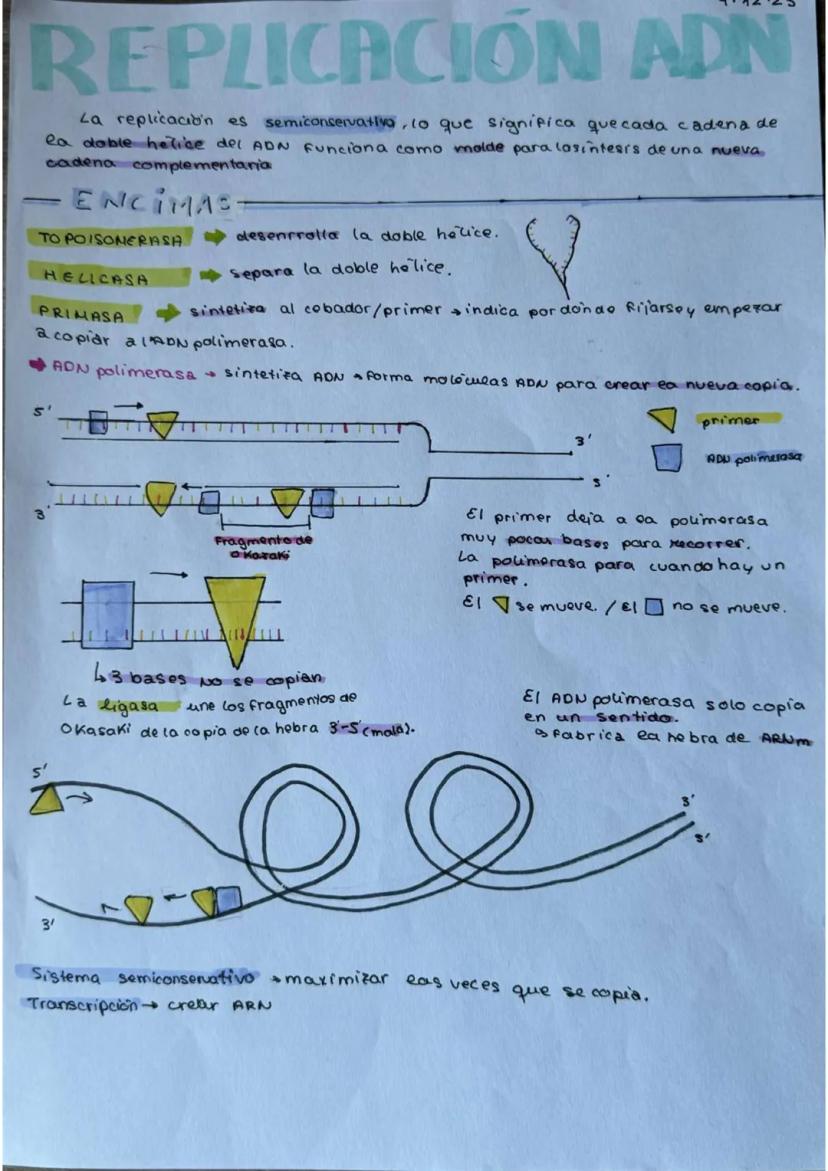 REPLICACIÓN ADN
La replicación es semiconservativa, lo que significa que cada cadena de
la doble hélice del ADN funciona como molde para la síntesis de una nueva
cadena complementaria
ENCIMAS
TOPOISOMERASA ➡ desenrrolla la doble hélice.
HELICASA ➡ separa la doble hélice.
PRIMASA ➡ sintetiza al cebador/primer → indica por dónde fijarse y empezar
a copiar a l'ADN polimerasa.
➡ ADN polimerasa → sintetiza ADN → forma moléculas ADN para crear la nueva copia.
5'
3'
primer
ADN polimerasa
5'
3'
Fragmento de
Okazaki
El primer deja a la polimerasa
muy pocas bases para recorrer.
La polimerasa para cuando hay un
primer.
El se mueve. / El no se mueve.
↳ 3 bases no se copian
La ligasa une los fragmentos de
Okasaki de la copia de la hebra 3'-5' (mala).
El ADN polimerasa solo copia
en un sentido.
↳ Fabrica la hebra de ARNm
5'
3'
5'
3'
Sistema semiconservativo → maximizar las veces que se copia.
Transcripción → crear ARN